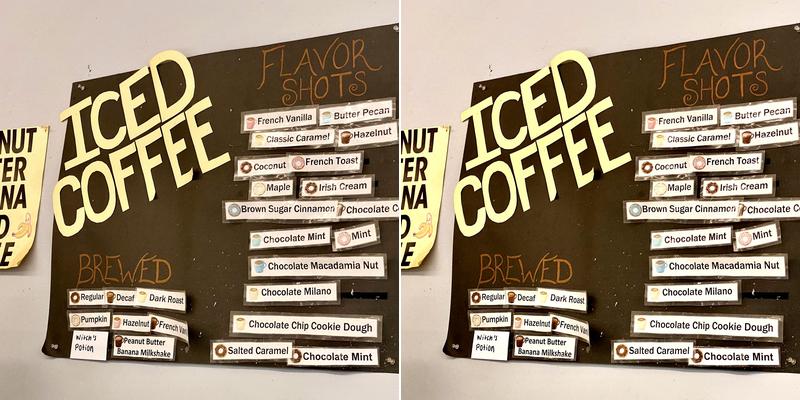 NUT
TER
NA
D
E
ICED
COFFEE
FLAVOR
SHOTS
French Vanilla Butter Pecan
Classic Caramel Hazelnut
Coconut French Toast
Maple Irish Cream
Brown Sugar Cinnamon Chocolate C
Chocolate Mint Mint
Chocolate Macadamia Nut
Chocolate Milano
Chocolate Chip Cookie Dough
Salted Caramel Chocolate Mint
BREWED
Regular Decaf Dark Roast
Pumpkin Hazelnut French Van
Witch's
Potion
Peanut Butter
Banana Milkshake
NUT
TER
NA
D
E
ICED
COFFEE
FLAVOR
SHOTS
French Vanilla Butter Pecan
Classic Caramel Hazelnut
Coconut French Toast
Maple Irish Cream
Brown Sugar Cinnamon Chocolate C
Chocolate Mint Mint
Chocolate Macadamia Nut
Chocolate Milano
Chocolate Chip Cookie Dough
Salted Caramel Chocolate Mint
BREWED
Regular Decaf Dark Roast
Pumpkin Hazelnut French Van
Witch's
Potion
Peanut Butter
Banana Milkshake